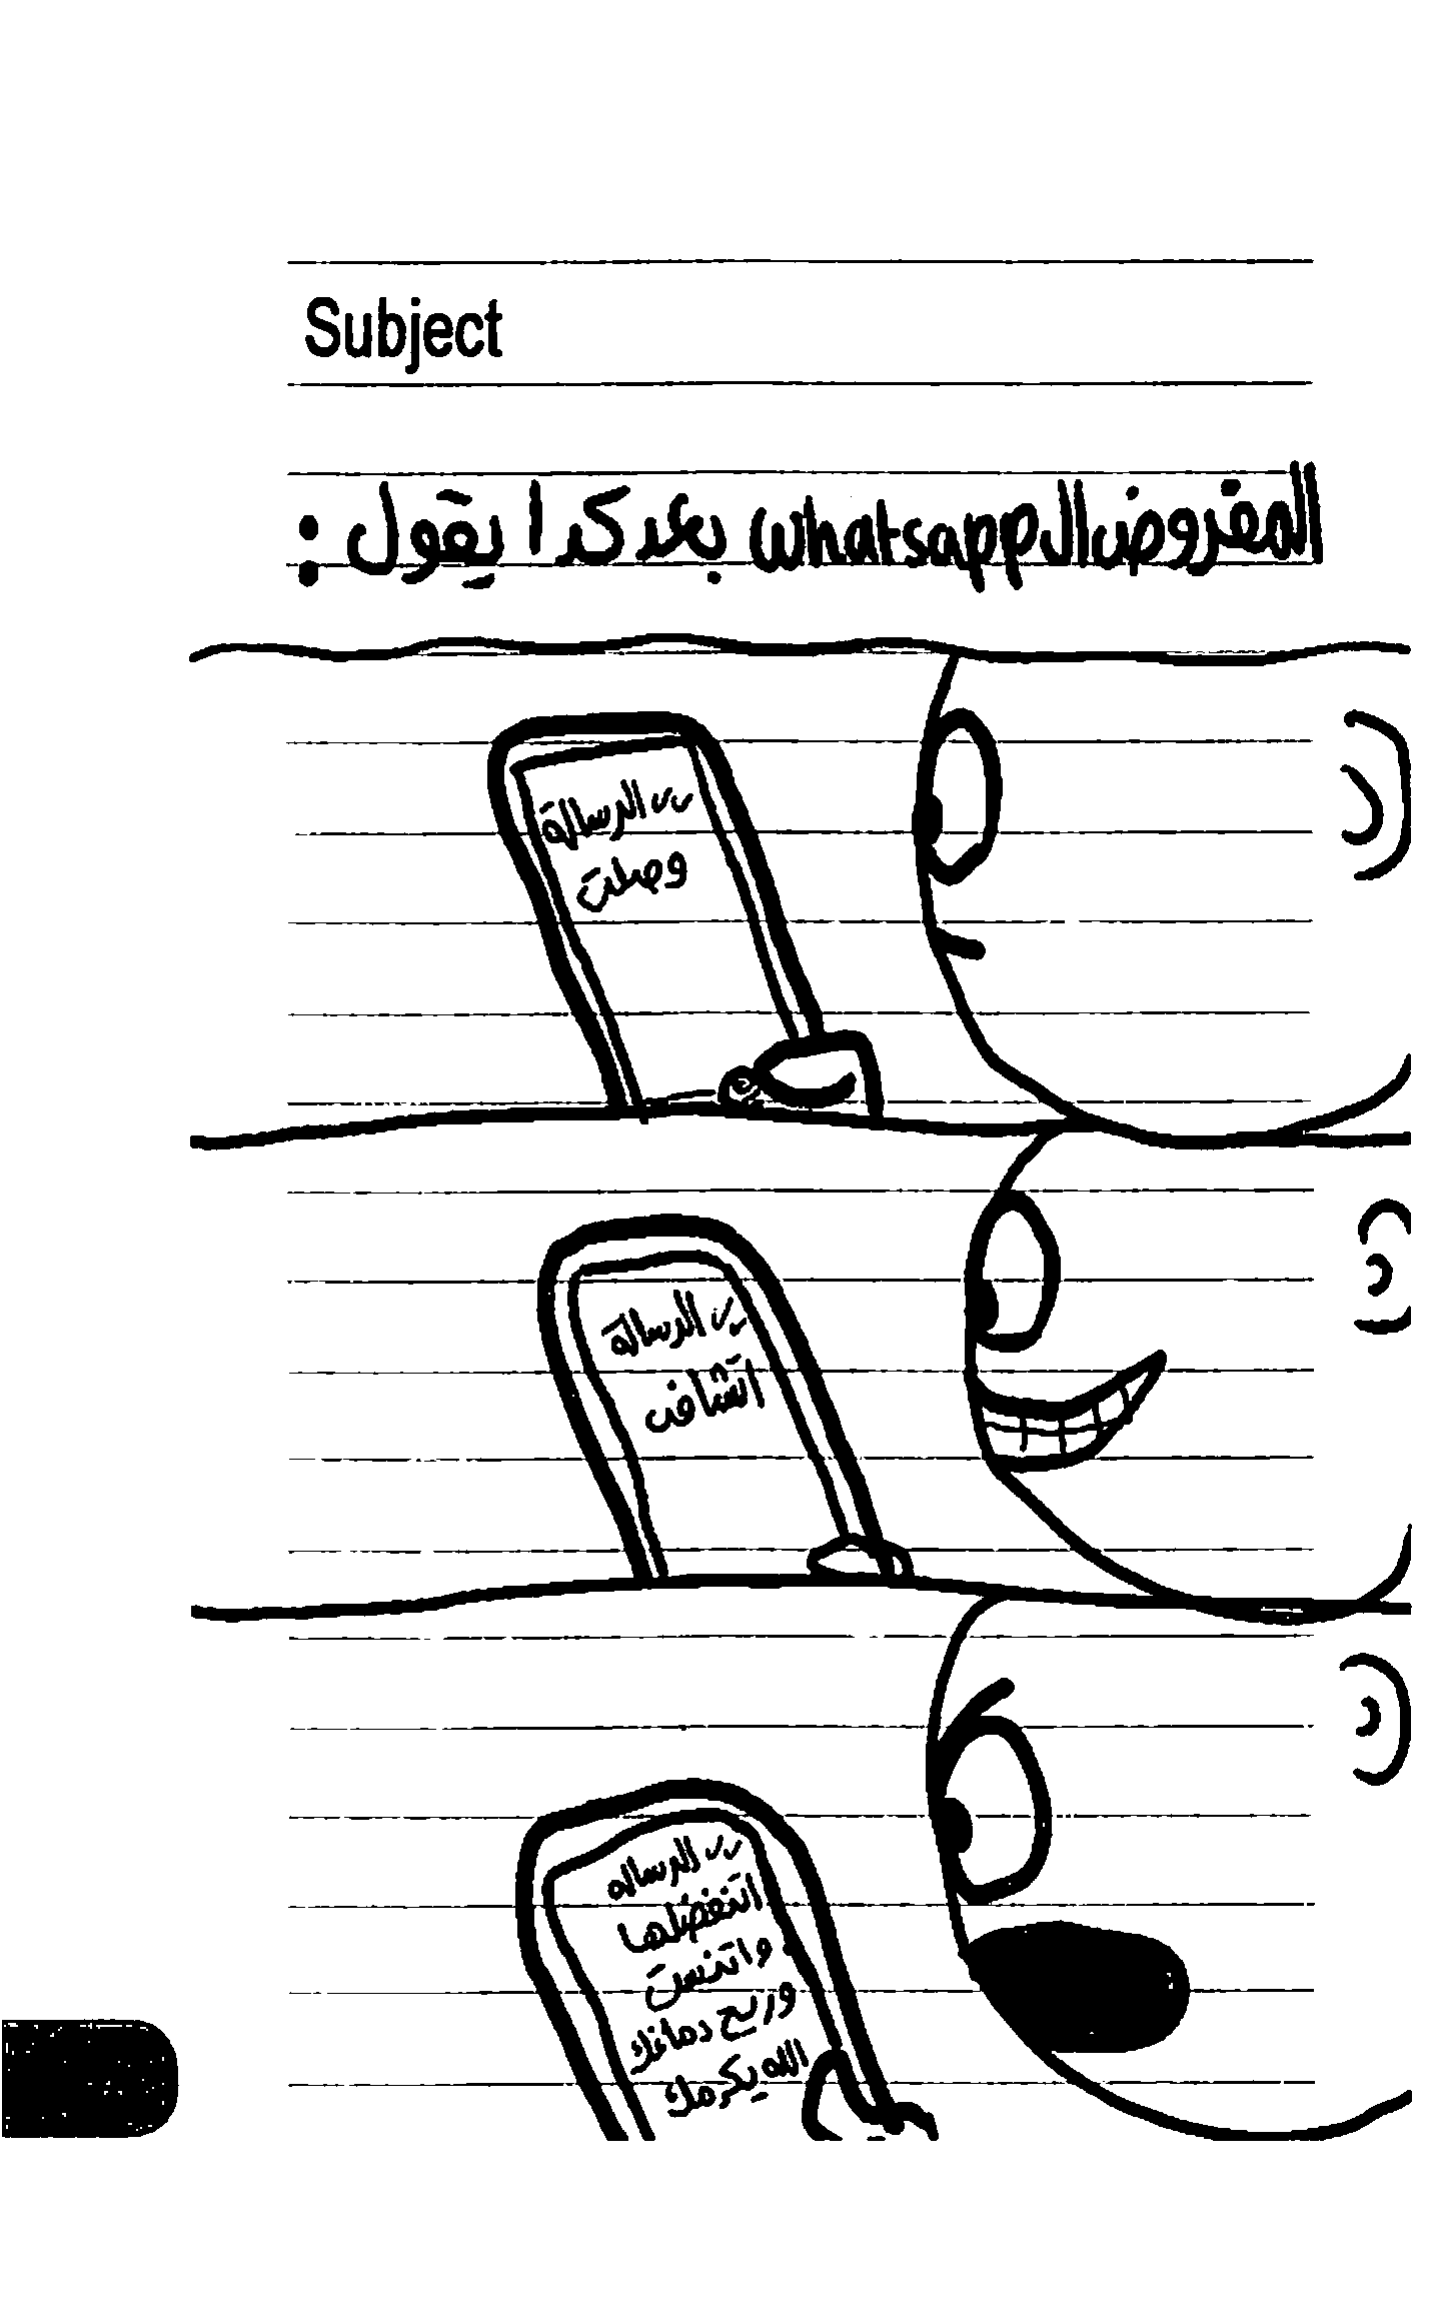 Subject
المفروض ال whatsapp بعد كدا يقول :
✓✓ الرسالة
وصلت
✓✓ الرسالة
اتشافت
✓✓ الرساله
اتنفضلها
واتنست
وريح دماغك
الله يكرمك